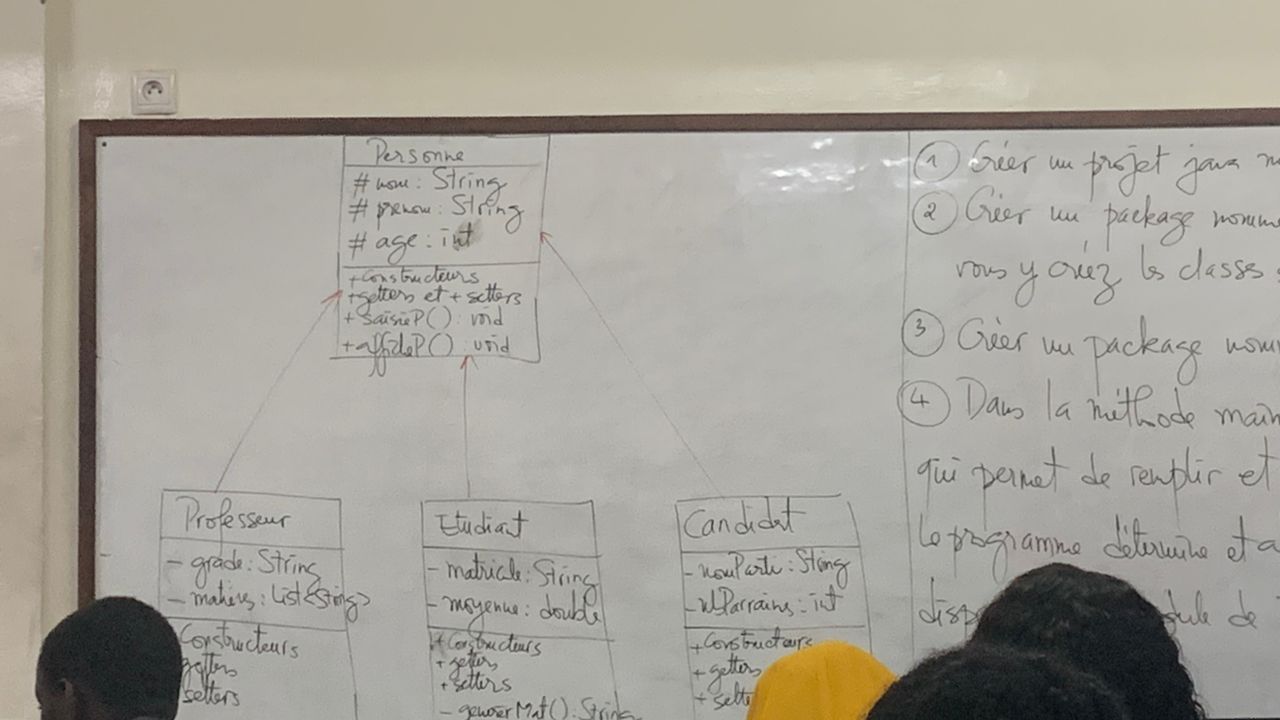 Personne
# nom : String
# prenom : String
# age : int
+ Constructeurs
+ getters et + setters
+ saisieP() : void
+ afficheP() : void
Professeur
- grade : String
- matières : List<String>
Constructeurs
getters
setters
Etudiant
- matricule : String
- moyenne : double
+ Constructeurs
+ getters
+ setters
- generMat() : String
Candidat
- nomParti : String
- nbParrains : int
+ Constructeurs
+ getters
+ sette
1 Créer un projet java
2 Créer un package nomm
vous y créez les classes
3 Créer un package nom
4 Dans la méthode main
qui permet de remplir et
le programme détermine et a
disp
de